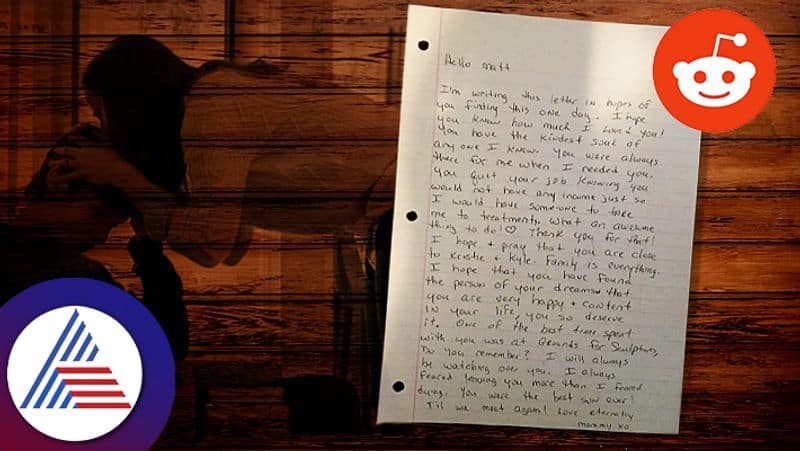 Hello Matt
I'm writing this letter in hopes of
you finding this one day. I hope
you know how much I loved you!
You have the kindest soul of
anyone I know. You were always
there for me when I needed you.
You quit your job knowing you
would not have any income just so
I would have someone to take
me to treatments. What an awesome
thing to do! ♡ Thank you for that!
I hope + pray that you are close
to Kristie + Kyle. Family is everything.
I hope that you have found
the person of your dreams + that
you are very happy + content
in your life, you so deserve
it. One of the best time spent
with you was at Grounds for Sculpture,
Do you remember? I will always
be watching over you. I always
feared leaving you more than I feared
dying. You were the best son ever!
Til we meet again! Love eternally
mommy xo